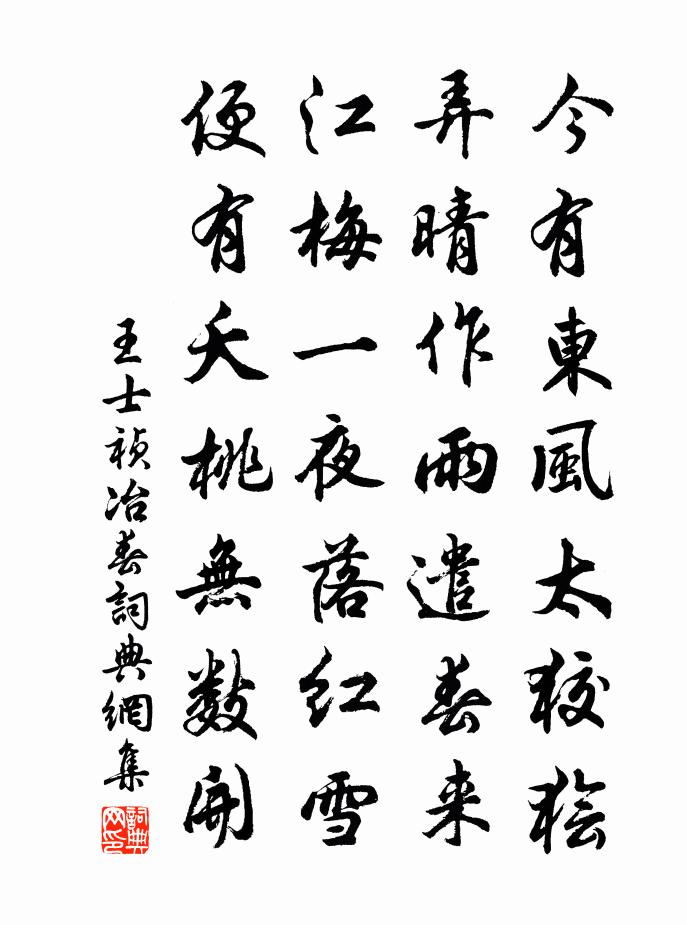 今有東風太狡獪
弄晴作雨遣春来
江梅一夜落红雪
便有夭桃無数開
王士祯冶春詞典網集
詞典网印